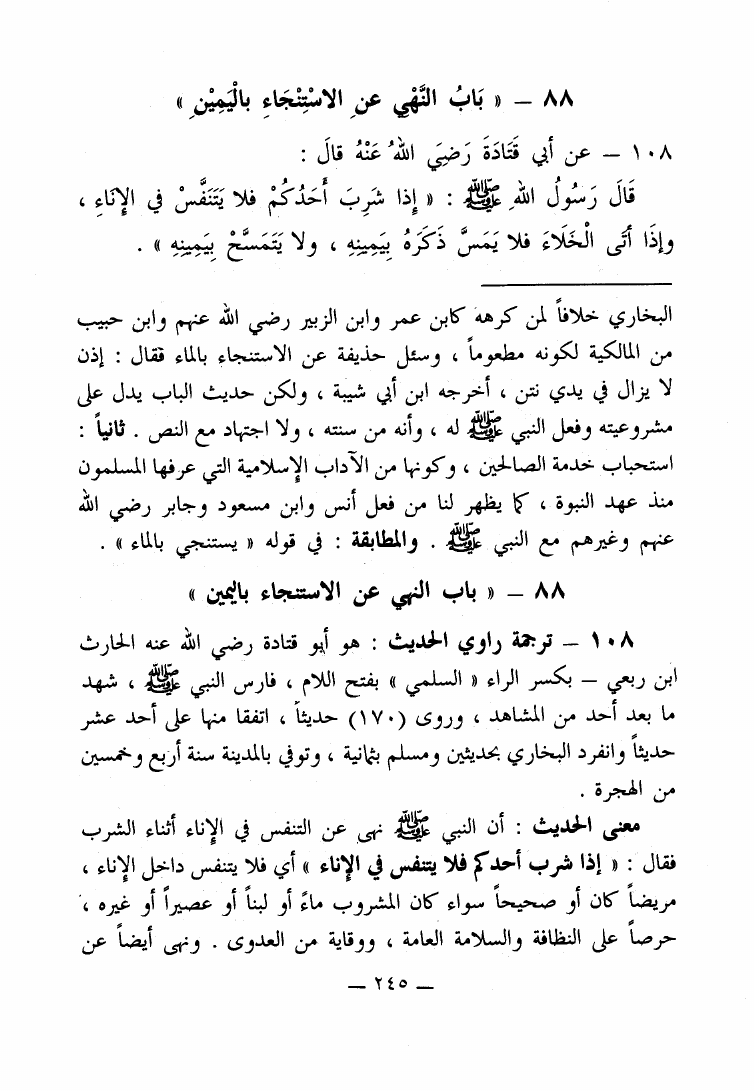 ٨٨ – « بَابُ النَّهْيِ عنِ الاسْتِنْجَاءِ بالْيَمِيْنِ »
١٠٨ – عن أبي قَتَادَةَ رَضِيَ اللهُ عَنْهُ قالَ :
قَالَ رَسُولُ اللهِ ﷺ : « إِذا شَرِبَ أَحَدُكُمْ فلا يَتَنَفَّسْ في الإِنَاءِ ،
وإِذَا أتَى الْخَلَاءَ فلا يَمَسَّ ذكَرَهُ بِيَمِينِهِ ، ولا يَتَمَسَّحْ بِيَمِينِهِ » .
البخاري خلافاً لمن كرهه كابن عمر وابن الزبير رضي الله عنهم وابن حبيب
من المالكية لكونه مطعوماً ، وسئل حذيفة عن الاستنجاء بالماء فقال : إذن
لا يزال في يدي نتن ، أخرجه ابن أبي شيبة ، ولكن حديث الباب يدل على
مشروعيته وفعل النبي ﷺ له ، وأنه من سنته ، ولا اجتهاد مع النص . ثانياً :
استحباب خدمة الصالحين ، وكونها من الآداب الإسلامية التي عرفها المسلمون
منذ عهد النبوة ، كما يظهر لنا من فعل أنس وابن مسعود وجابر رضي الله
عنهم وغيرهم مع النبي ﷺ . والمطابقة : في قوله « يستنجي بالماء » .
٨٨ – « باب النهي عن الاستنجاء باليمين »
١٠٨ – ترجمة راوي الحديث : هو أبو قتادة رضي الله عنه الحارث
ابن ربعي – بكسر الراء « السلمي » بفتح اللام ، فارس النبي ﷺ ، شهد
ما بعد أحد من المشاهد ، وروى (١٧٠) حديثاً ، اتفقا منها على أحد عشر
حديثاً وانفرد البخاري بحديثين ومسلم بثمانية ، وتوفي بالمدينة سنة أربع وخمسين
من الهجرة .
معنى الحديث : أن النبي ﷺ نهى عن التنفس في الإناء أثناء الشرب
فقال : « إذا شرب أحدكم فلا يتنفس في الإناء » أي فلا يتنفس داخل الإناء ،
مريضاً كان أو صحيحاً سواء كان المشروب ماءً أو لبناً أو عصيراً أو غيره ،
حرصاً على النظافة والسلامة العامة ، ووقاية من العدوى . ونهى أيضاً عن
– ٢٤٥ –